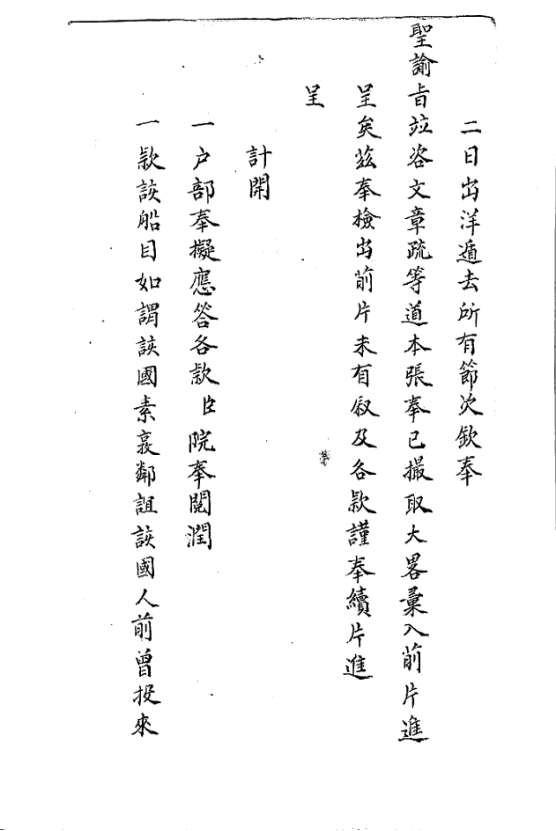 二日出洋遁去所有節次欽奉
聖諭旨竝咨文章疏等道本張奉已撮取大畧彙入前片進
呈矣茲奉檢出前片未有叙及各款謹奉續片進
呈
計開
一户部奉擬應答各款臣院奉閱潤
一款該船目如謂該國素裒鄰誼該國人前曾投來